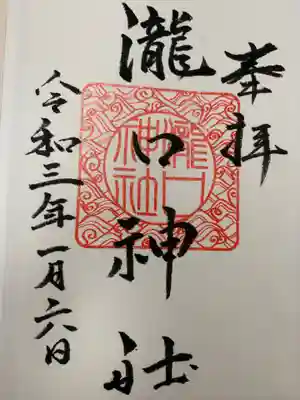 奉拝
瀧口神社
令和三年一月六日
瀧口
神社